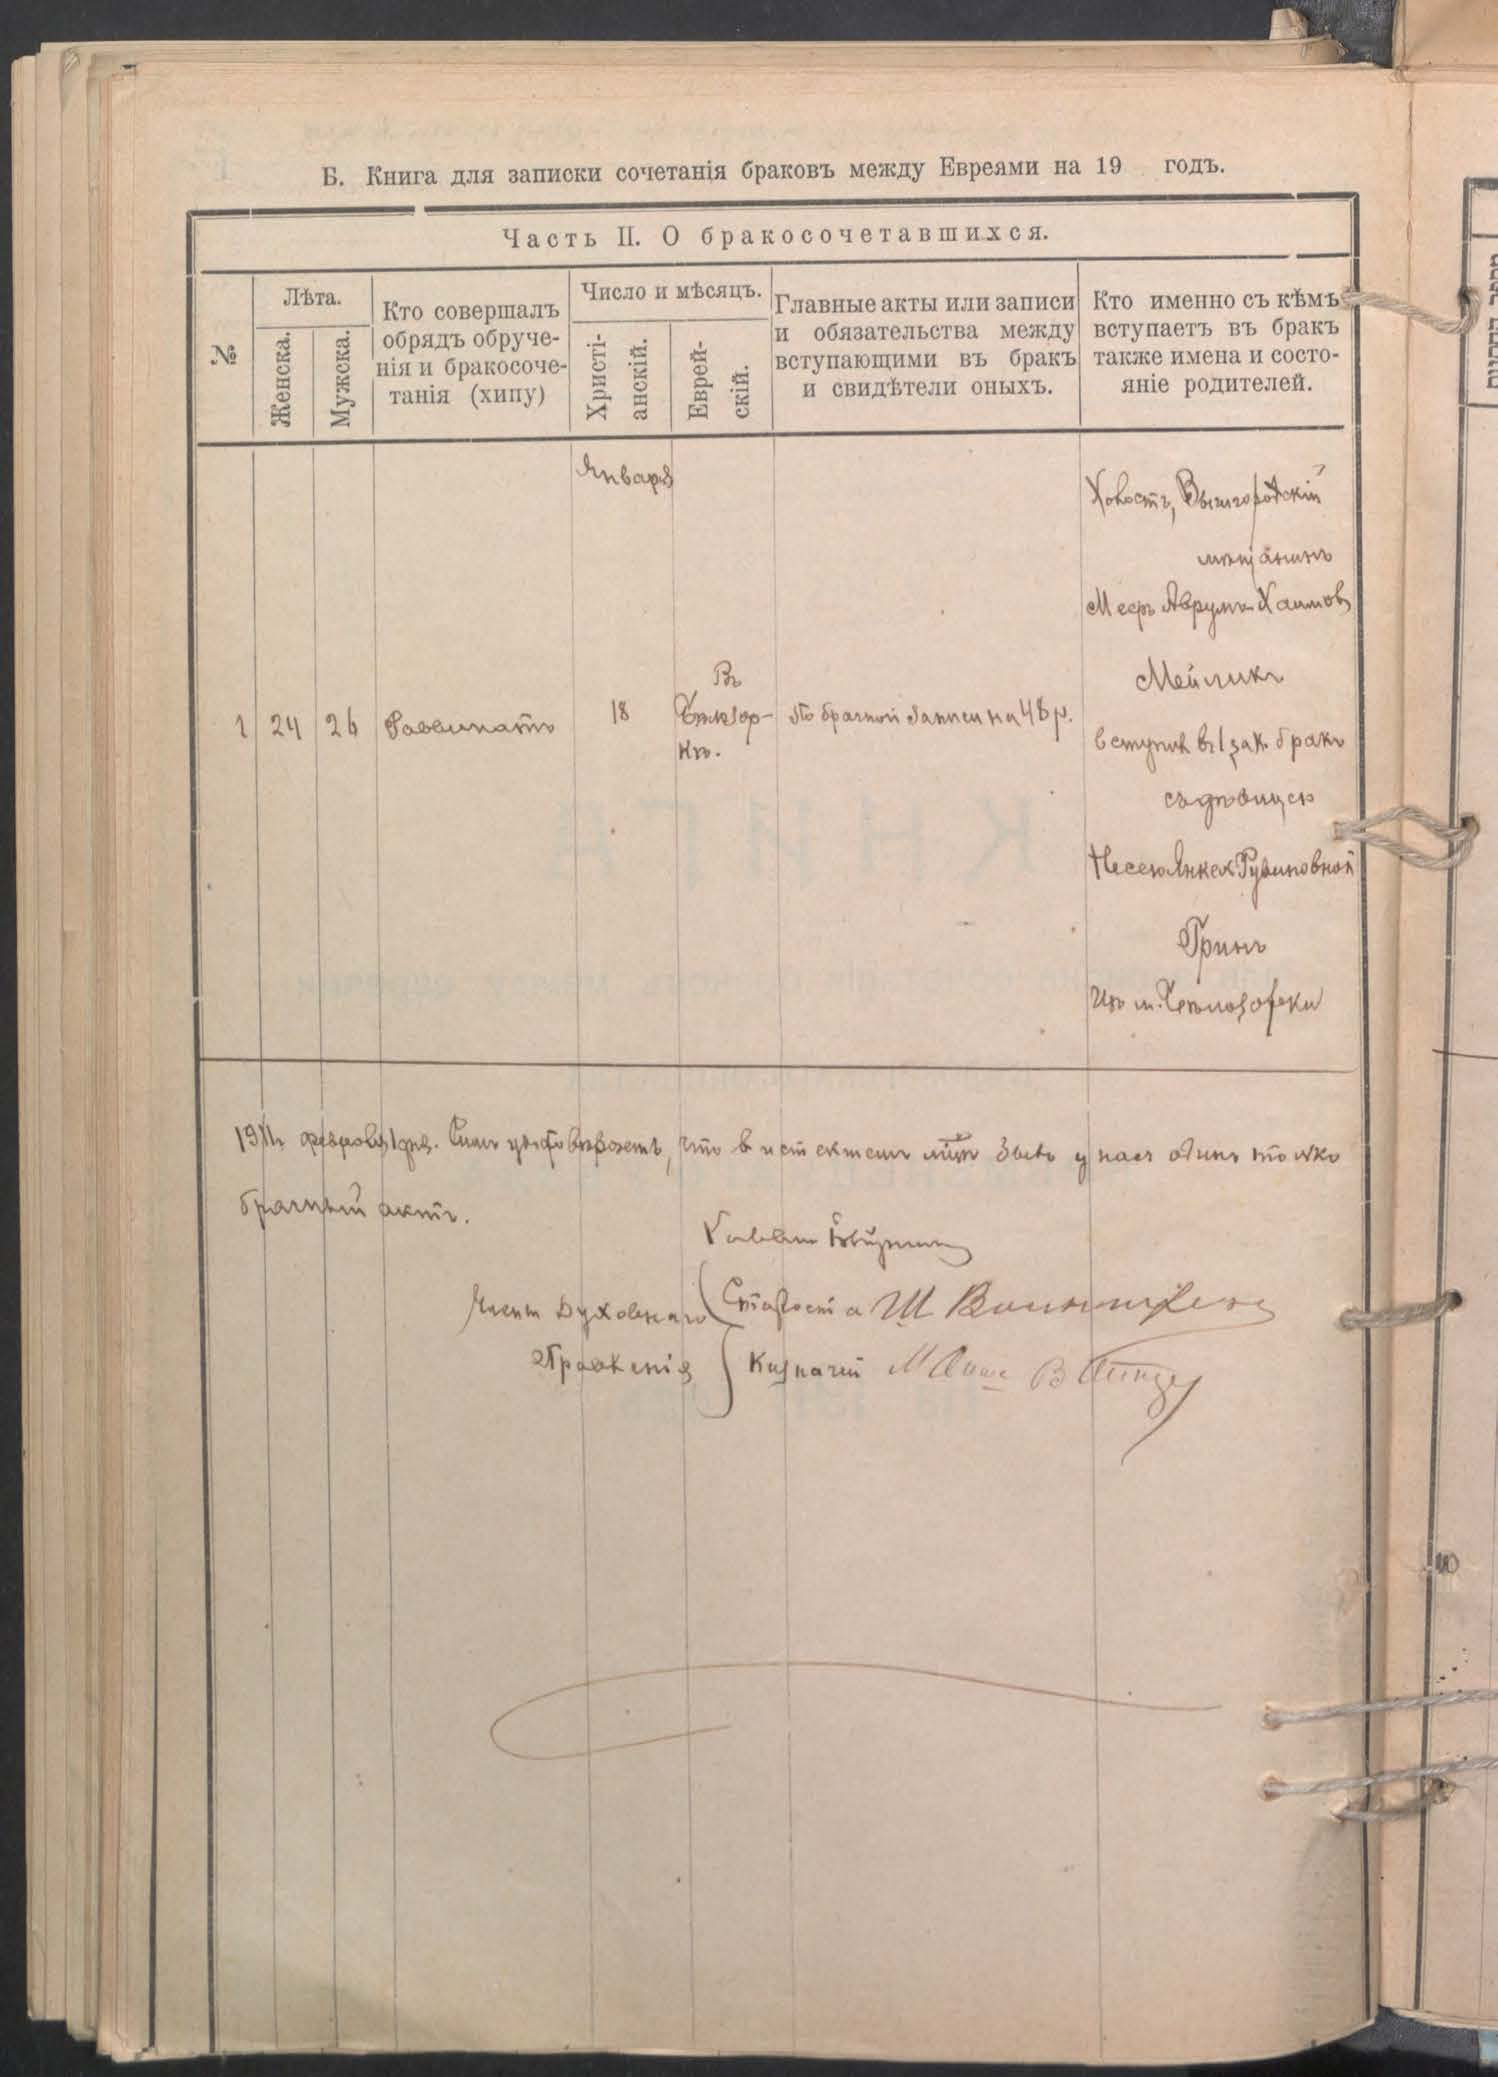 Б. Книга для записки сочетанія браковъ между Евреями на 19 годъ.
Часть II. О бракосочетавшихся.
№
Лѣта.
Женска.
Мужска.
Кто совершалъ
обрядъ обруче-
нія и бракосоче-
танія (хипу)
Число и мѣсяцъ.
Христі-
анскій.
Еврей-
скій.
Главные акты или записи
и обязательства между
вступающими въ бракъ
и свидѣтели оныхъ.
Кто именно съ кѣмъ
вступаетъ въ бракъ
также имена и состо-
яніе родителей.
Января
1
24
26
Раввинатъ
18
Въ
кѣ.
По брачной записи на 48 р.
Холостъ, Вышгородскій
мѣщанинъ
Мееръ Аврумъ Хаимов
Мейликъ
вступил въ 1 зак. бракъ
съ дѣвицею
Песею Янкел Рувиновной
Гринъ
Изъ м.
1911 г. февраля 1 дня. Симъ удостовѣряемъ, что в истекшем мцѣ было у насъ одинъ только
брачный актъ.
Раввин
Члены Духовнаго
Правленія
Староста Ш
Казначей М